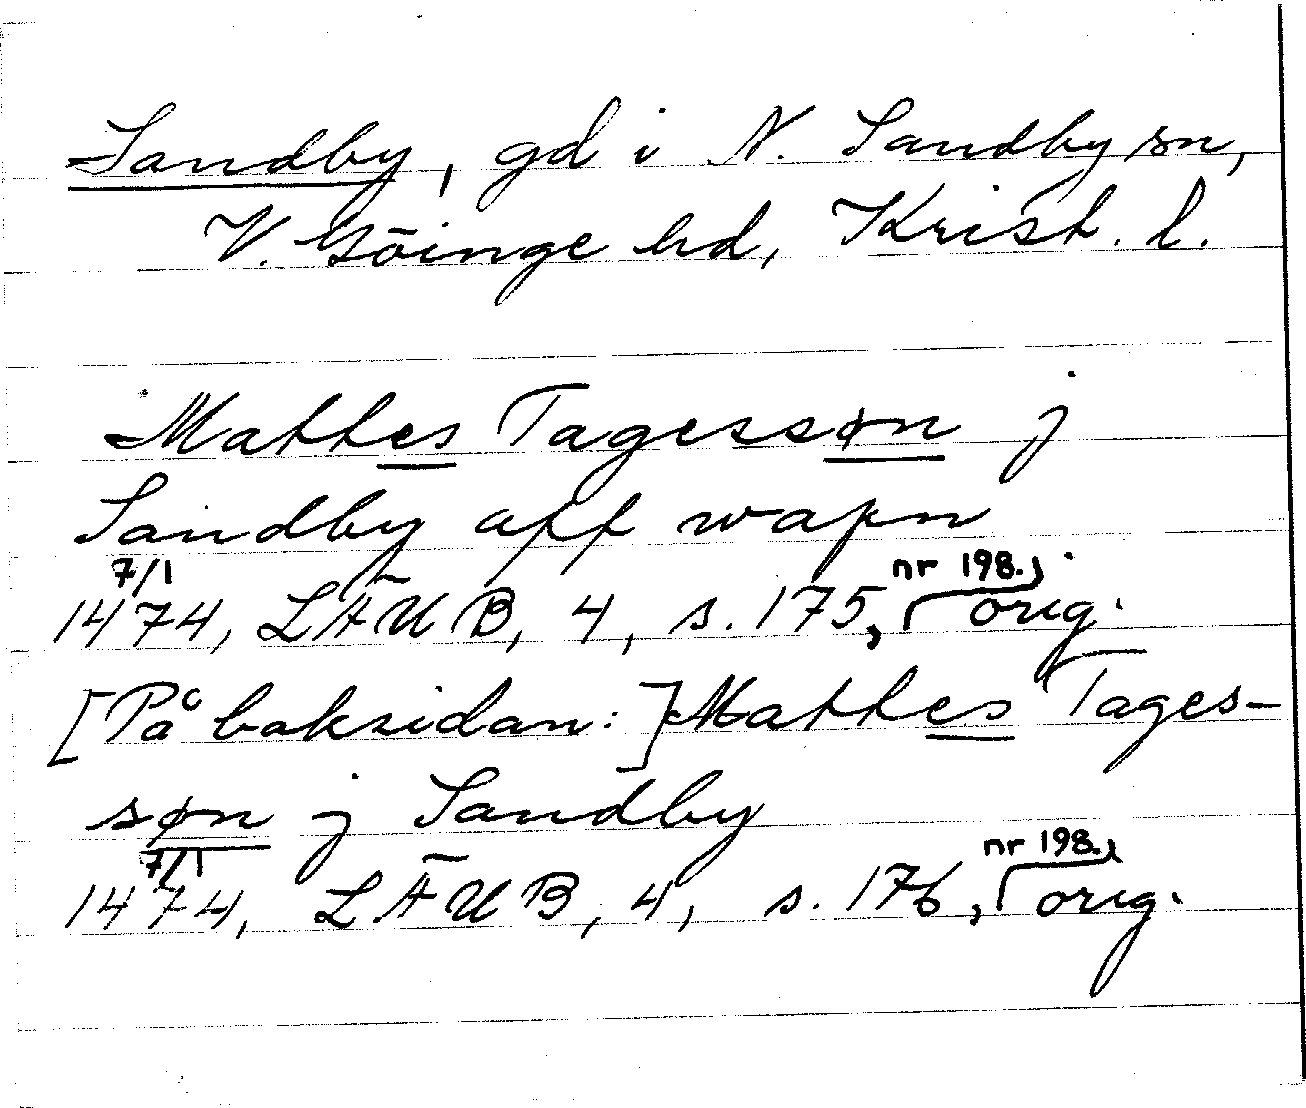 Sandby, gd i N. Sandby sn,
V. Göinge hd, Krist. l.
Mattes Tagessøn j
Sandby aff wapn
7/1 nr 198.,
1474, LÄUB, 4, s. 175, orig.
[På baksidan:] Mattes Tages-
søn j Sandby
7/1 nr 198.,
1474, LÄUB, 4, s. 176, orig.